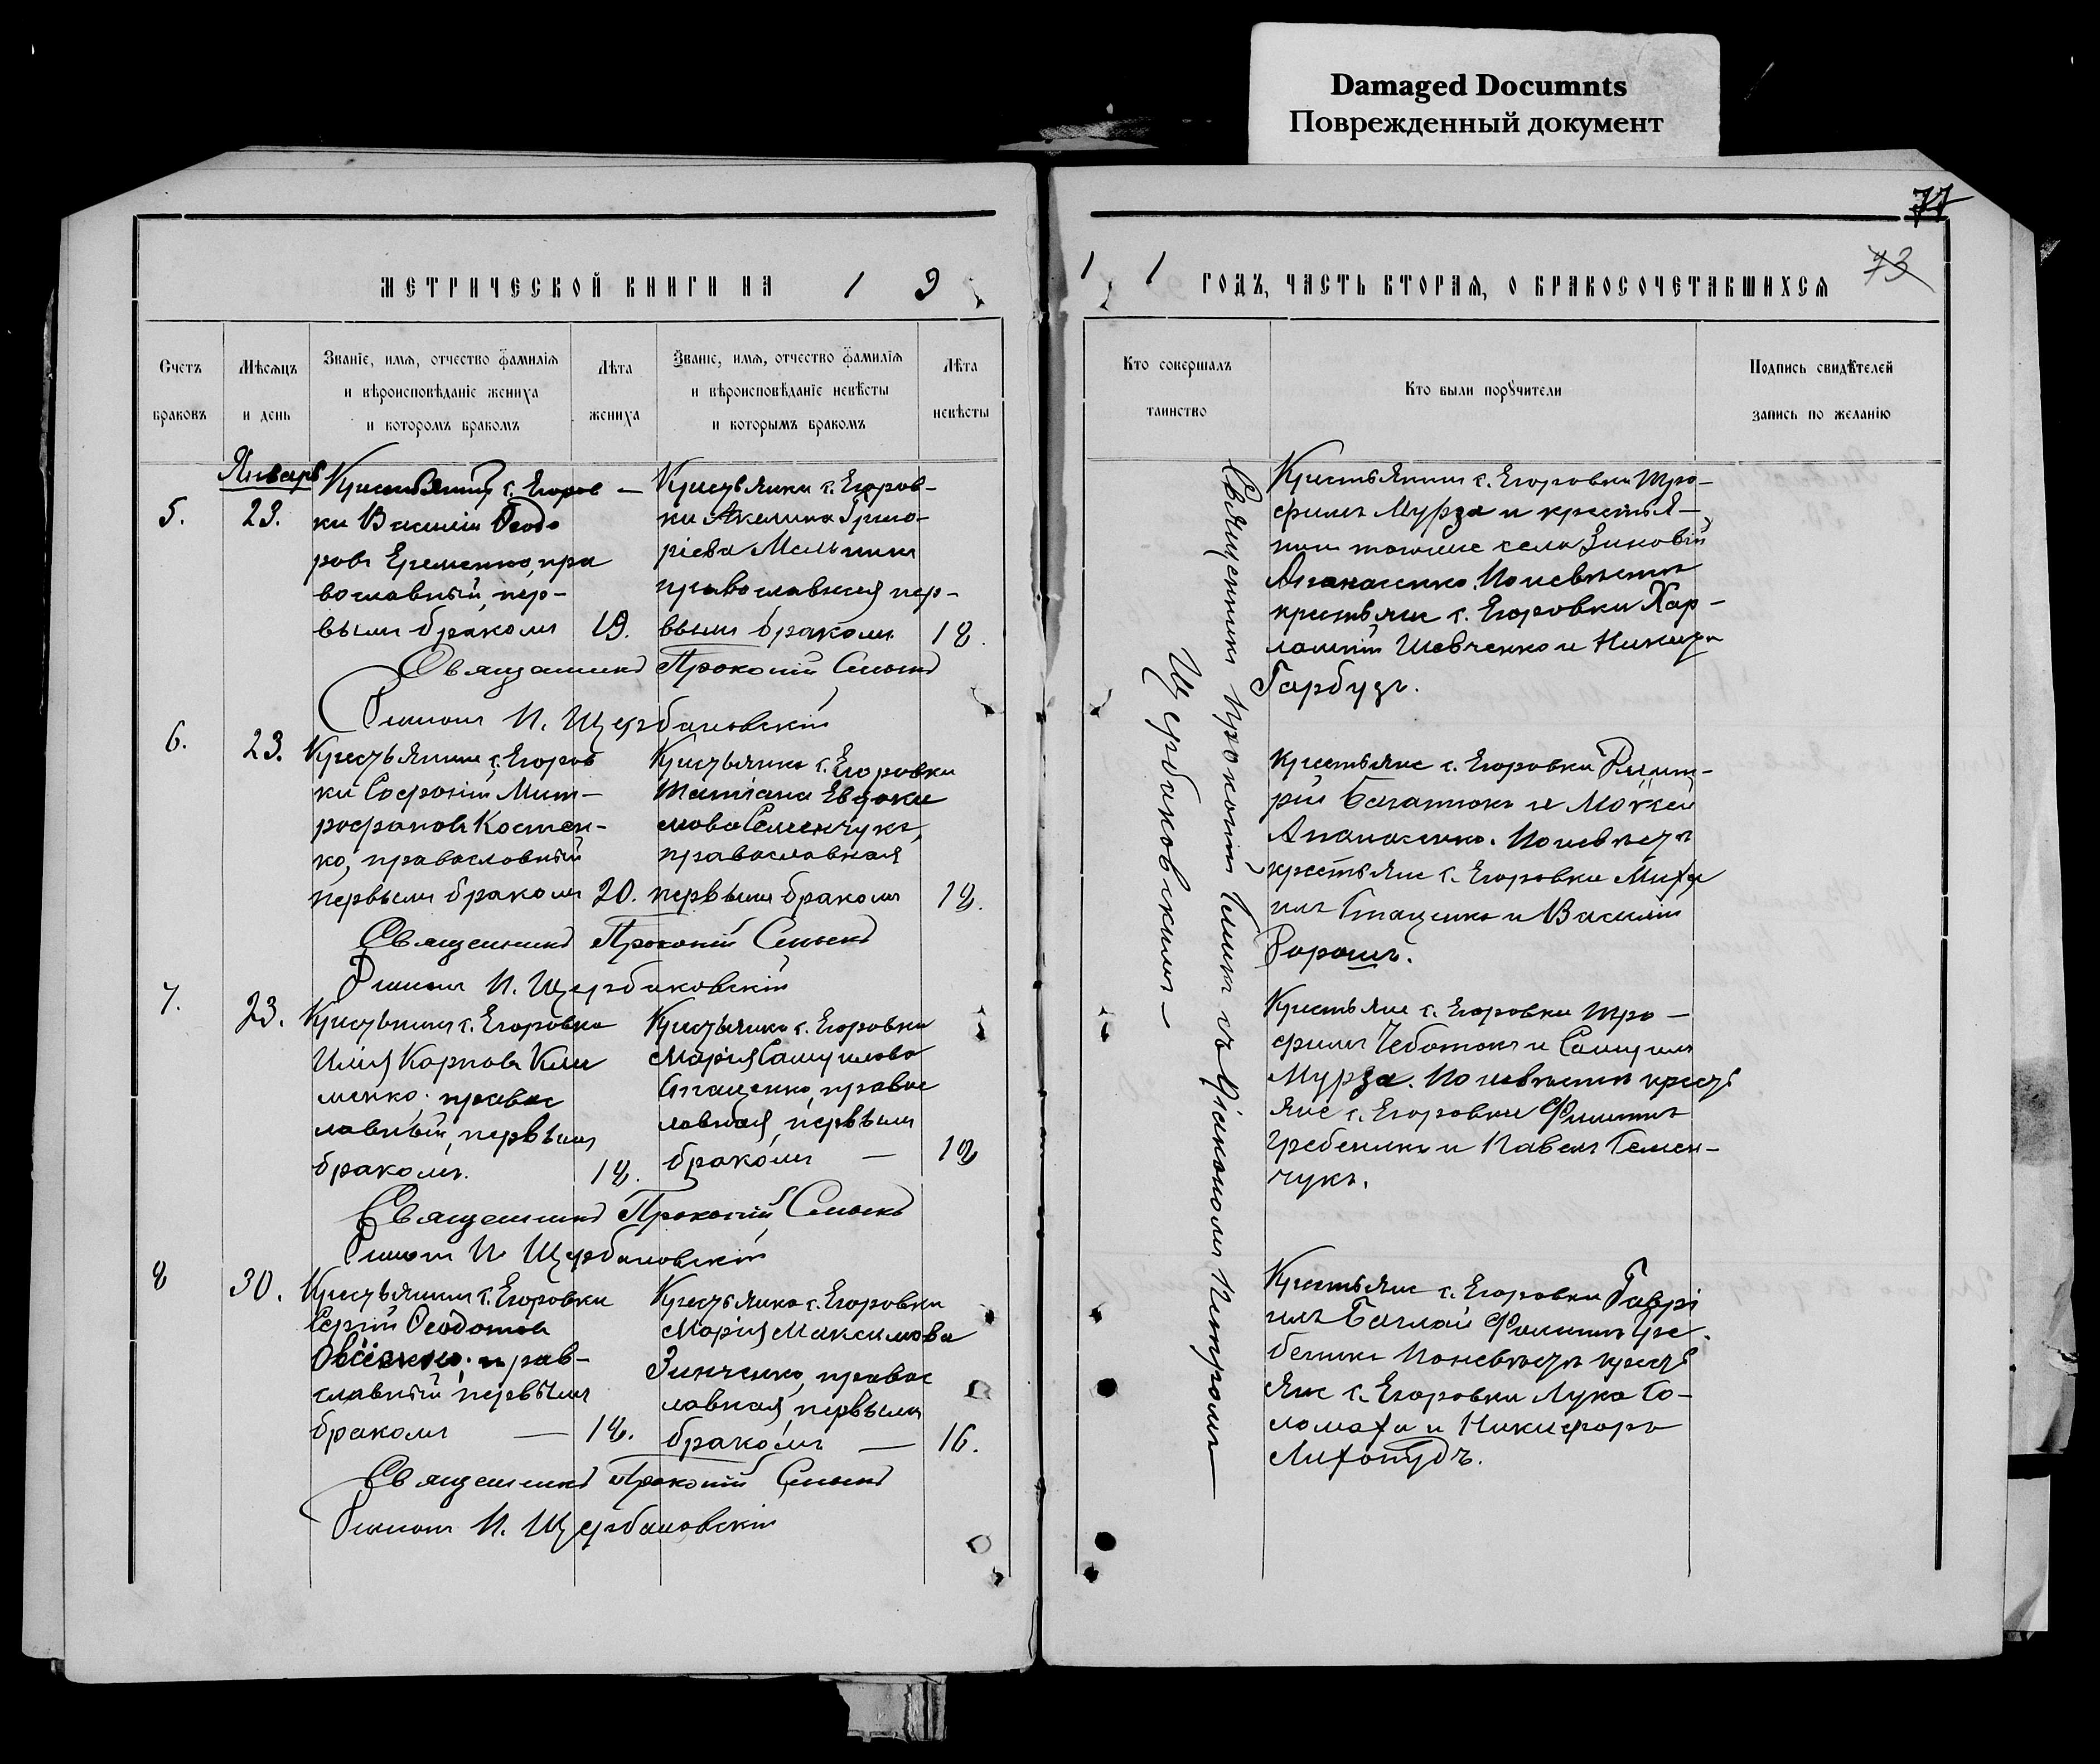 Damaged Documnts
Поврежденный документ
77
73
МЕТРИЧЕСКОЙ КНИГИ НА 1 9
1 1 ГОДЪ, ЧАСТЬ ВТОРАЯ, О БРАКОСОЧЕТАВШИХСЯ
Счетъ
браковъ
Мѣсяцъ
и день
Званіе, имя, отчество фамилія
и вѣроисповѣданіе жениха
и которомъ бракомъ
Лѣта
жениха
Званіе, имя, отчество фамилія
и вѣроисповѣданіе невѣсты
и которымъ бракомъ
Лѣта
невѣсты
Кто совершалъ
таинство
Кто были поручители
Подпись свидѣтелей
запись по желанію
Январь
5.
23.
Крестьянинъ с. Егоров-
ки Василій Ѳеодо
ровъ Еременко, пра
вославный, пер-
вымъ бракомъ
19.
Крестьянка с. Егоров-
ки Акелина Григо-
ріева Мельника
православная пер-
вымъ бракомъ
18.
Священникъ Прокопій
Діаконъ П. Щербаковскій
6.
23.
Крестьянинъ с. Егоров
ки Софроній Мит-
рофановъ Костен-
ко, православный
первымъ бракомъ
20.
Крестьянка с. Егоровки
Татіана Евдоки
мова Семенчукъ,
православная
первымъ бракомъ
18.
Священникъ Прокопій
Діаконъ П. Щербаковскій
7.
23.
Крестьянинъ с. Егоровки
Илія Карповъ Кли
менко. правос
лавный, первымъ
бракомъ.
18.
Крестьянка с. Егоровки
Марія Самуилова
Стаценко, правос
лавная, первымъ
бракомъ —
18
Священникъ Прокопій
Діаконъ П. Щербаковскій
8
30.
Крестьянинъ с. Егоровки
Сергій Ѳеодотовъ
Овсіенко. прав-
славный, первымъ
бракомъ —
18.
Крестьянка с. Егоровки
Марія Максимова
Зинченко, правос
лавная, первымъ
бракомъ —
16.
Священникъ Прокопій
Діаконъ П. Щербаковскій
Священникъ Прокопій съ Діакономъ Петромъ
Щербаковскимъ
Крестьянинъ с. Егоровки Тро-
фимъ Мурза и крестья-
нинъ тогоже села Зиновій
Апанасенко. По невѣстѣ
крестьяне с. Егоровки Хар-
лампій Шевченко и Никита
Гарбузъ.
Крестьяне с. Егоровки Димит-
рій Багатюкъ и Моѵсей
Апанасенко. По невѣстѣ
крестьяне с. Егоровки Миха
илъ Стаценко и Василій
Дорошъ.
Крестьяне с. Егоровки Тро-
фимъ Чеботокъ и Самуилъ
Мурза. По невѣстѣ кресть
яне с. Егоровки Филиппъ
Гребеникъ и Павелъ Семен-
чукъ.
Крестьяне с. Егоровки Гаврі
илъ Баглай Филиппъ Гре
беникъ По невѣстѣ кресть
яне с. Егоровки Лука Со-
ломаха и Никифоръ
Лихопудъ.